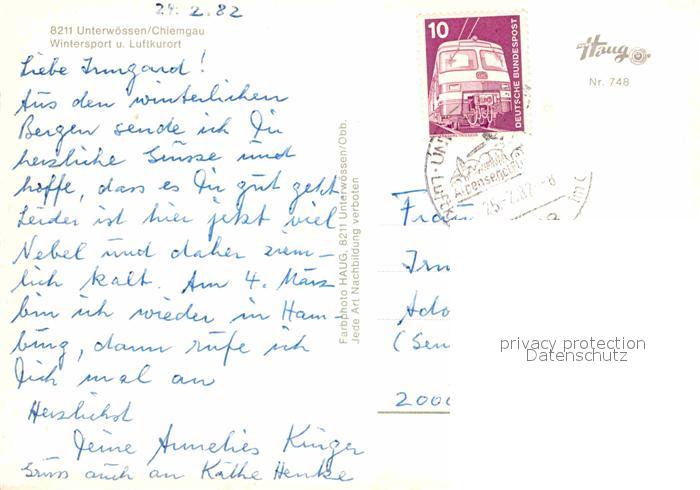 24.2.82
8211 Unterwössen/Chiemgau
Wintersport u. Luftkurort
Liebe Irmgard!
Aus den winterlichen
Bergen sende ich Dir
herzliche Grüsse und
hoffe, dass es Dir gut geht
Leider ist hier jetzt viel
Nebel und daher ziem-
lich kalt. Am 4. März
bin ich wieder in Ham-
burg, dann rufe ich
Dich mal an
Herzlichst
Deine Annelies Krüger
Gruss auch an Käthe Henke
Farbphoto HAUG, 8211 Unterwössen/Obb.
Jede Art Nachbildung verboten
10
DEUTSCHE BUNDESPOST
25.-2.82-8
Haug
Nr. 748
Frau
Irm
Ado
(Sen
2000
privacy protection
Datenschutz